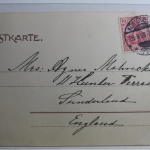 STKARTE.
Mrs. Agnes Mahnicke
11 Hunter Terrace
Sunderland
England